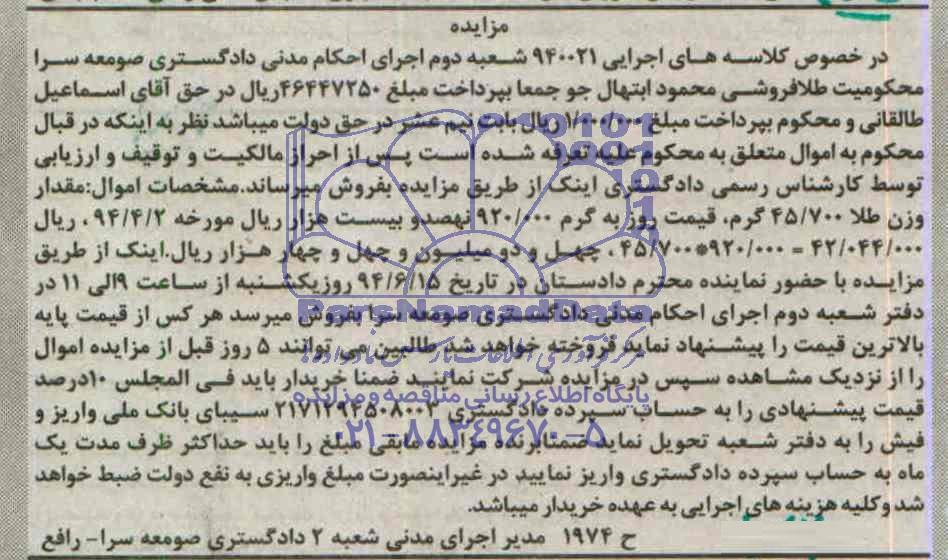 مزایده
در خصوص کلاسه های اجرایی ۹۴۰۰۲۱ شعبه دوم اجرای احکام مدنی دادگستری صومعه سرا
محکومیت طلافروشی محمود ابتهال جو جمعا بپرداخت مبلغ ۴۶۴۴۷۲۵۰ریال در حق آقای اسماعیل
طالقانی و محکوم بپرداخت مبلغ ۱/۰۰۰/۰۰۰ ریال بابت نیم عشر در حق دولت میباشد نظر به اینکه در قبال
محکوم به اموال متعلق به محکوم علیه تعرفه شده است پس از احراز مالکیت و توقیف و ارزیابی
توسط کارشناس رسمی دادگستری اینک از طریق مزایده بفروش میرساند.مشخصات اموال:مقدار
وزن طلا ۴۵/۷۰۰ گرم، قیمت روز به گرم ۹۲۰/۰۰۰ نهصدو بیست هزار ریال مورخه ۹۴/۴/۲ ، ریال
۴۲/۰۴۴/۰۰۰ = ۹۲۰/۰۰۰*۴۵/۷۰۰ ، چهل و دو میلیون و چهل و چهار هزار ریال.اینک از طریق
مزایده با حضور نماینده محترم دادستان در تاریخ ۹۴/۶/۱۵ روزیکشنبه از ساعت ۹الی ۱۱ در
دفتر شعبه دوم اجرای احکام مدنی دادگستری صومعه سرا بفروش میرسد هر کس از قیمت پایه
بالاترین قیمت را پیشنهاد نماید فروخته خواهد شد طالبین می توانند ۵ روز قبل از مزایده اموال
را از نزدیک مشاهده سپس در مزایده شرکت نمایند ضمنا خریدار باید فی المجلس ۱۰درصد
قیمت پیشنهادی را به حساب سپرده دادگستری ۲۱۷۱۲۹۴۵۰۸۰۰۳ سیبای بانک ملی واریز و
فیش را به دفتر شعبه تحویل نماید ضمنابرنده مزایده مابقی مبلغ را باید حداکثر ظرف مدت یک
ماه به حساب سپرده دادگستری واریز نمایید در غیراینصورت مبلغ واریزی به نفع دولت ضبط خواهد
شد وکلیه هزینه های اجرایی به عهده خریدار میباشد.
ح ۱۹۷۴ مدیر اجرای مدنی شعبه ۲ دادگستری صومعه سرا- رافع
ParsNamadData
پایگاه اطلاع رسانی مناقصه و مزایده
۰۲۱-۸۸۳۴۹۶۷۰-۵